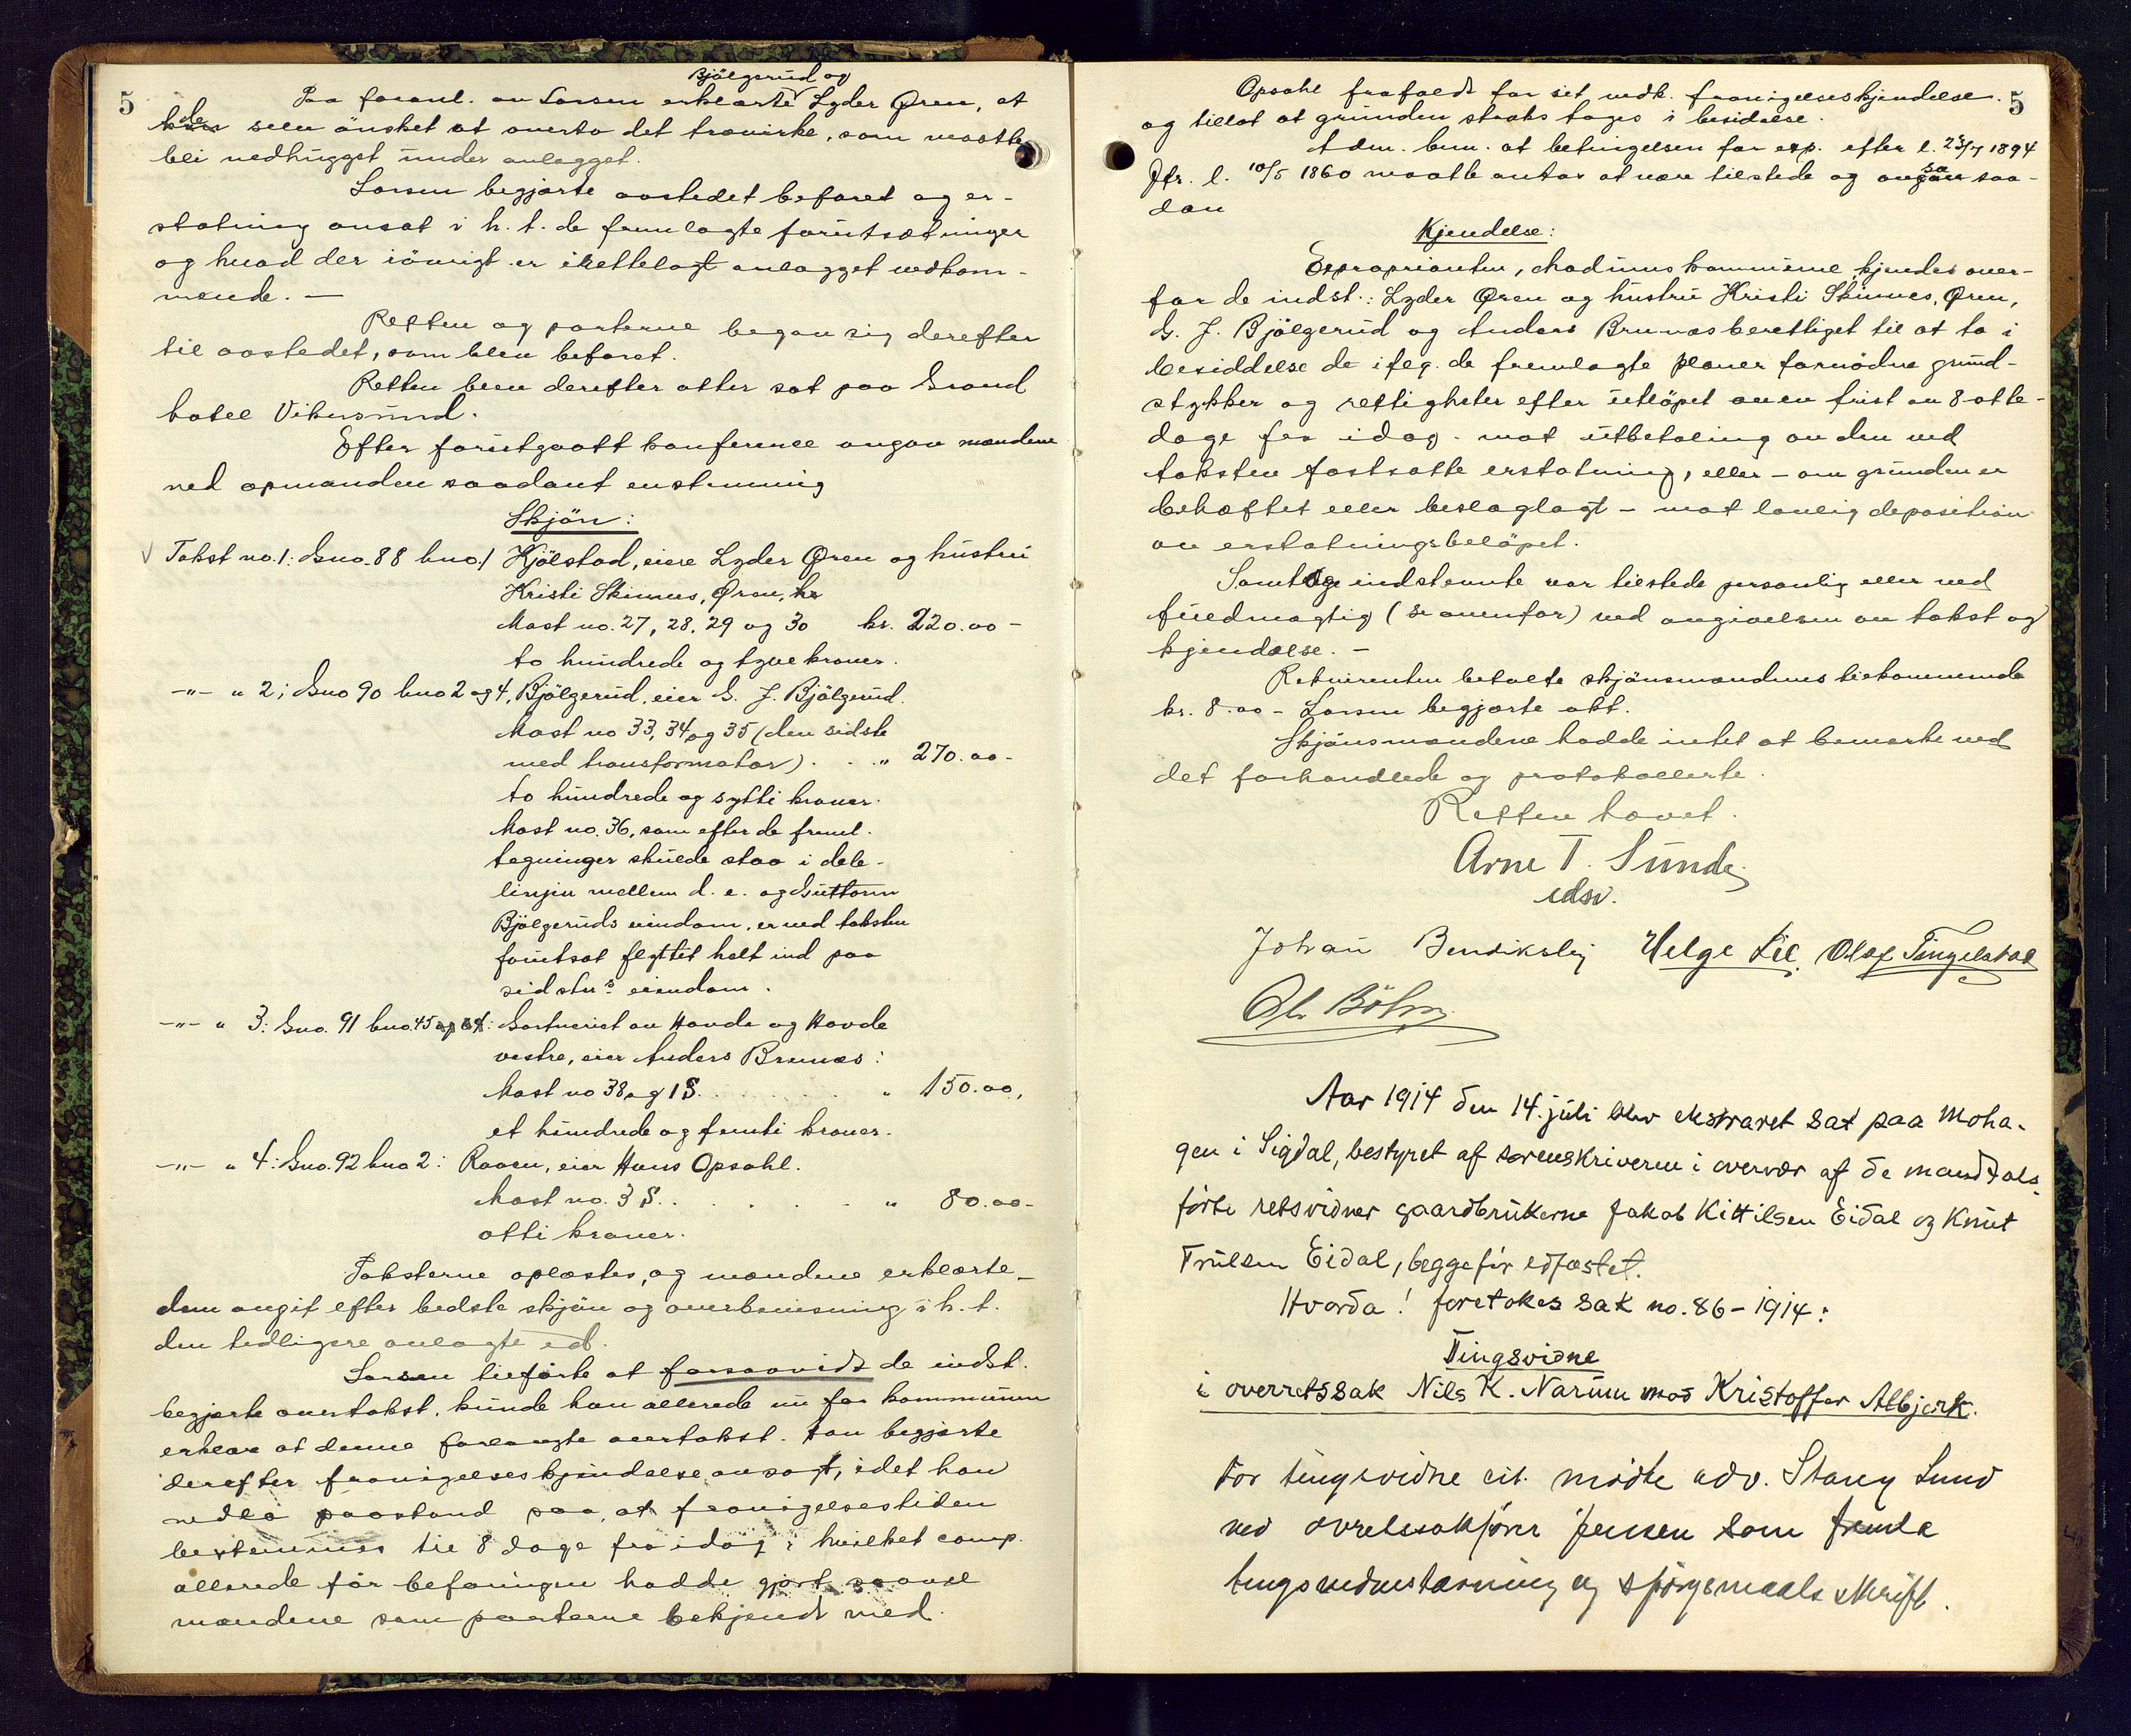 5
Bjölgerud og
Paa foranl. av Larsen erklærte Lyder Øren, at
de selv ønsket at överta det trævirke, som maatte
bli nedhugget under anlægget.
Larsen begjærte aastedet befaret og er-
statning ansat i h. t. de fremlagte forutsætninger
og hvad der iövrigt er irettelagt anlægget vedkom-
mende. —
Retten og parterne begav sig derefter
til aastedet, som blev befaret.
Retten blev derefter atter sat paa Grand
hotel Vikersund.
Efter forutgaatt konference avgav mændene
med opmanden saadant enstemmig
Skjön:
Takst no. 1: Gno. 88 bno. 1 Hjölstad, eiere Lyder Øren og hustru
Kristi Skinnes, Øren,
Mast no. 27, 28, 29 og 30 kr. 220.00 -
to hundrede og tyve kroner.
-"- " 2; Gno 90 bno 2 og 4, Bjölgerud, eier G. J. Bjölgerud.
Mast no 33, 34 og 35 (den sidste
med transformator) . . " 270.00 -
to hundrede og sytti kroner.
Mast no. 36, som efter de freml.
tegninger skulde staa i dele-
linjen mellem d. e. og Guttorm
Bjölgeruds eiendom, er ved taksten
forutsat flyttet helt ind paa
sidstns eiendom.
-"- " 3: Gno. 91 bno. 45 og 64: Gartneriet av Hovde og Hovde
vestre, eier Anders Brunæs:
Mast no 38 og 1 S. . . . . . " 150.00,
et hundrede og femti kroner.
-"- " 4: Gno. 92 bno 2: Raaen, eier Hans Opsahl.
Mast no. 3 S. . . . . . " 80.00 -
otti kroner.
Taksterne oplæstes, og mændene erklærte
dem avgit efter bedste skjön og överbevisning i h. t.
den tidligere avlagte ed.
Larsen tilförte at forsaavidt de indst.
begjærte overtakst, kunde han allerede nu for kommunen
erklære at denne forlangte overtakst. Han begjærte
derefter fravigelseskjendelse avsagt, idet han
nedla paastand paa, at fravigelsestiden
bestemmes til 8 dage fra idag, hvilket comp.
allerede för befaringen hadde gjort saavel
mændene som parterne bekjendt med.
5
Opsahl frafaldt for sit vedk. fravigelseskjendelse
og tillot at grunden straks tages i besiddelse.
Adm. bem. at betingelsen for exp. efter l. 23/7 1894
Jfr. l. 10/5 1860 maatte antas at være tilstede og avsa saa-
dan
Kjendelse:
Exproprianten, Modums kommune, kjendes over-
for de indst.: Lyder Øren og hustru Kristi Skinnes, Øren,
G. J. Bjölgerud og Anders Brunæs berettiget til at ta i
besiddelse de ifög. de fremlagte planer fornödne grund-
stykker og rettigheter efter utlöpet av en frist av 8 otte
dage fra idag. mot utbetaling av den ved
taksten fastsatte erstatning, eller - om grunden er
behæftet eller beslaglagt - mot lovlig deposition
av erstatningsbelöpet.
Samtlige indstevnte var tilstede personlig eller ved
fuldmægtig (se ovenfor) ved avgivelsen av takst og
kjendelse. -
Rekvirenten betalte skjönsmændenes tilkommende
kr. 8.00 - Larsen begjærte akt.
Skjönsmændene hadde intet at bemerke ved
det forhandlede og protokollerte.
Retten hævet.
Arne T. Sunde
edsv.
Johan Bendiksby Helge Lie Olaf Tingelstad
Böhn
Aar 1914 den 14. juli blev ekstraret sat paa Moha-
gen i Sigdal, bestyret af sorenskriveren i overvær af de mandtals-
förte retsvidner gaardbrukerne Jakob Kittilsen Eidal og Knut
Trulsen Eidal, begge för edfæstet.
Hvorda! foretokes sak no. 86 - 1914:
Tingsvidne
i overretssak Nils K. Narum mod Kristoffer Albjerk.
For tingsvidne cit. mödte adv. Stang Lund
ved overretssakförer Jensen som fremla
tingsvidnestævning og spörgsmaals skrift.